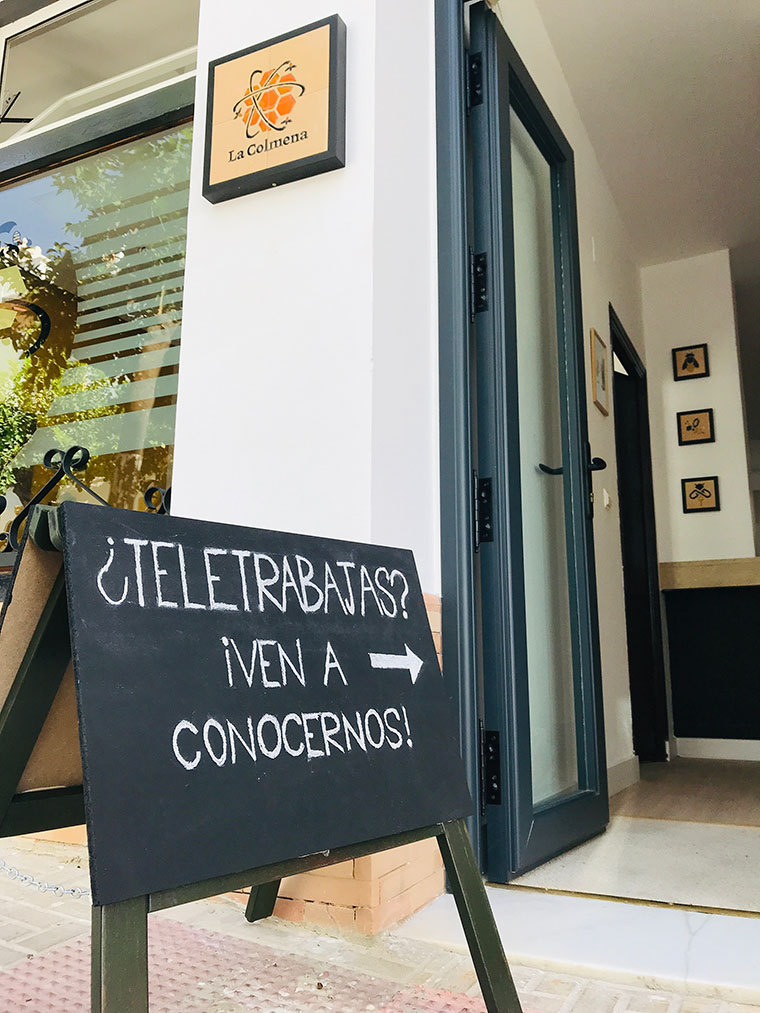 La Colmena
¿TELETRABAJAS?
¡VEN A →
CONOCERNOS!